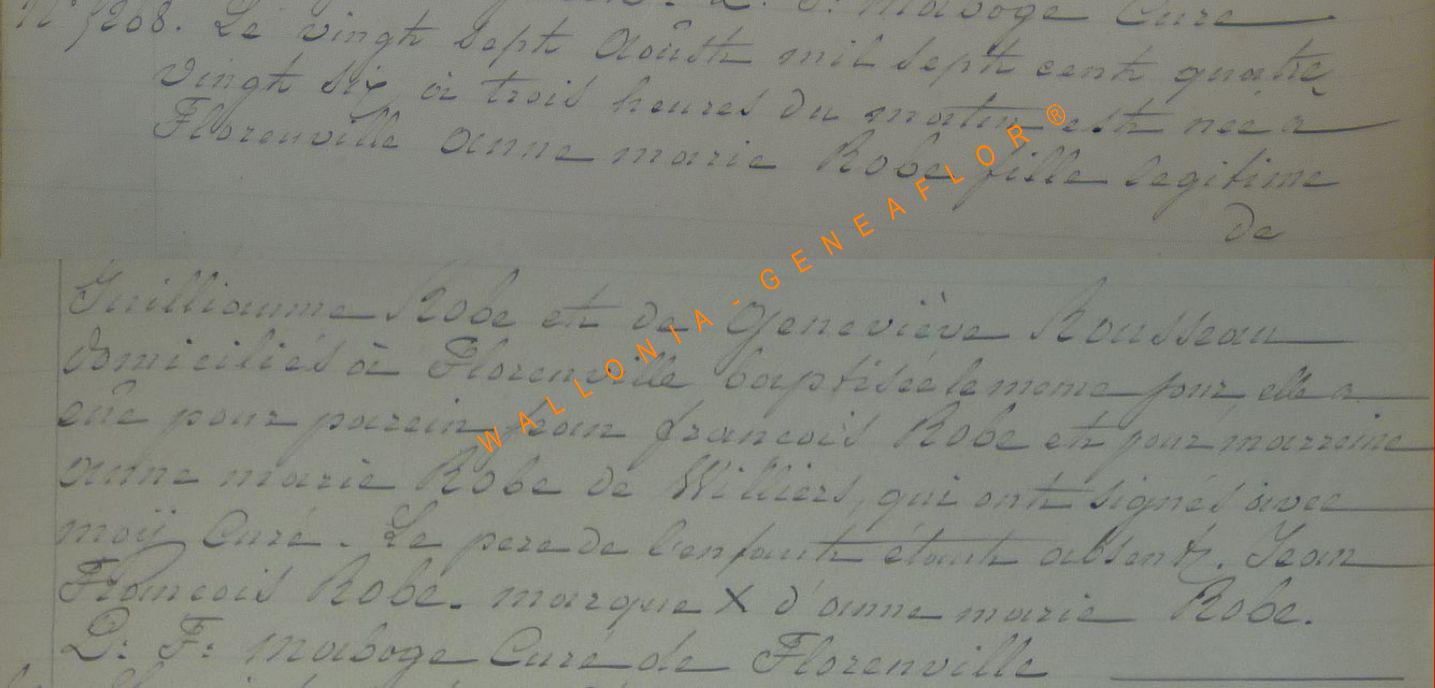 D. F. Maboge Curé
N° 1268. Le vingt sept Aoûst mil sept cent quatre
vingt six à trois heures du matin est née a
Florenville anne marie Robe fille legitime
de
Guilliaume Robe et de Geneviève Rousseau
domiciliés à Florenville baptisée le meme jour elle a
eûe pour parein Jean françois Robe et pour marreine
anne marie Robe de Williers, qui ont signés avec
moÿ Curé. Le pere de l'enfant étant absent. Jean
François Robe. marque X d'anne marie Robe.
D: F: Maboge Curé de Florenville
WALLONIA-GENEAFLOR ®